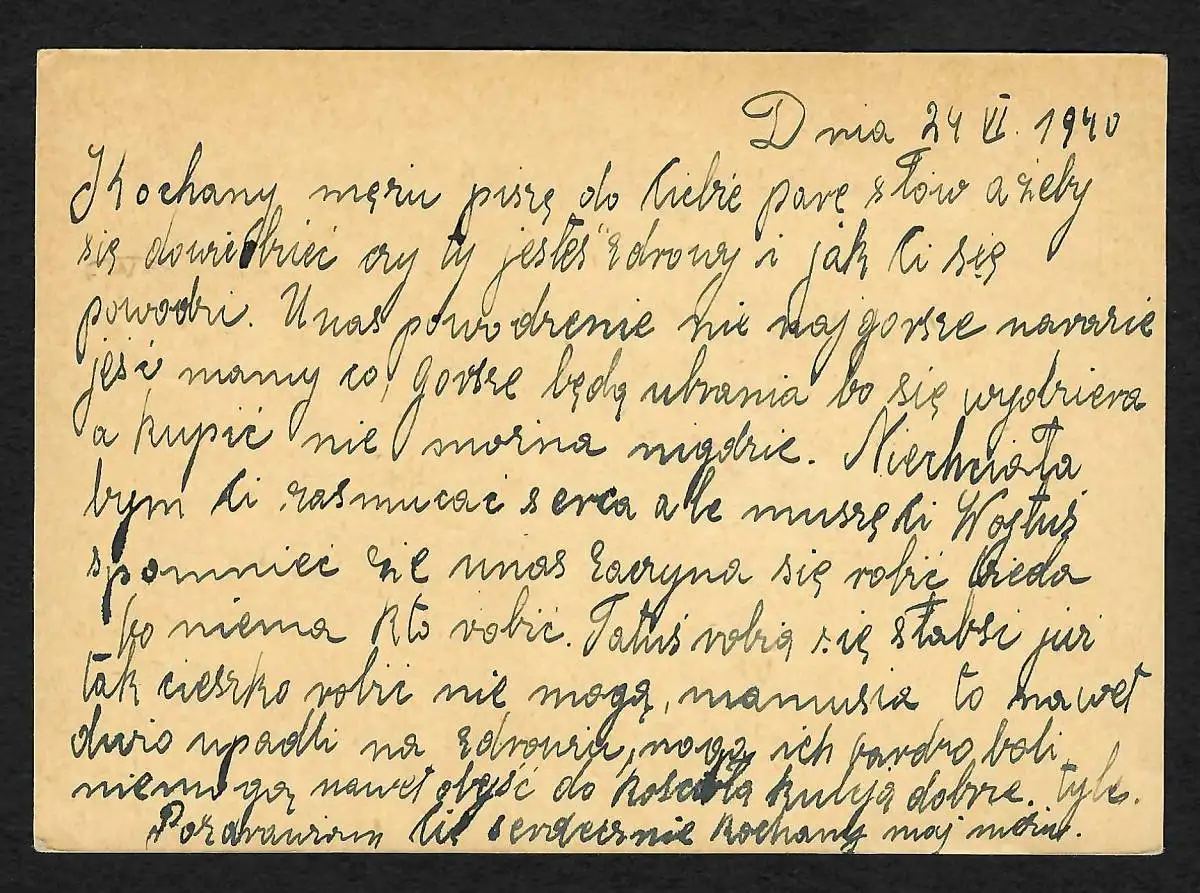 Dnia 24 VI. 1940
Kochany mężu piszę do Ciebie parę słów ażeby
się dowiedzieć czy ty jesteś zdrowy i jak Ci się
powodzi. Unas powodzenie nie najgorsze narazie
jeść mamy co, gorsze będą ubrania bo się wydziera
a kupić nie można nigdzie. Niechciała
bym Ci zasmucać serca ale muszę Ci Wojtuś
spomnieć że unas zaczyna się robić bieda
bo niema kto robić. Tatuś robią się słabsi już
tak cieszko robić nie mogą, mamusia to nawet
dużo upadli na zdrowiu, noga ich bardzo boli
niemogą nawet objść do kościoła kuleją dobrze. tyle.
Pozdrawiam Cię serdecznie kochany mój mężu.